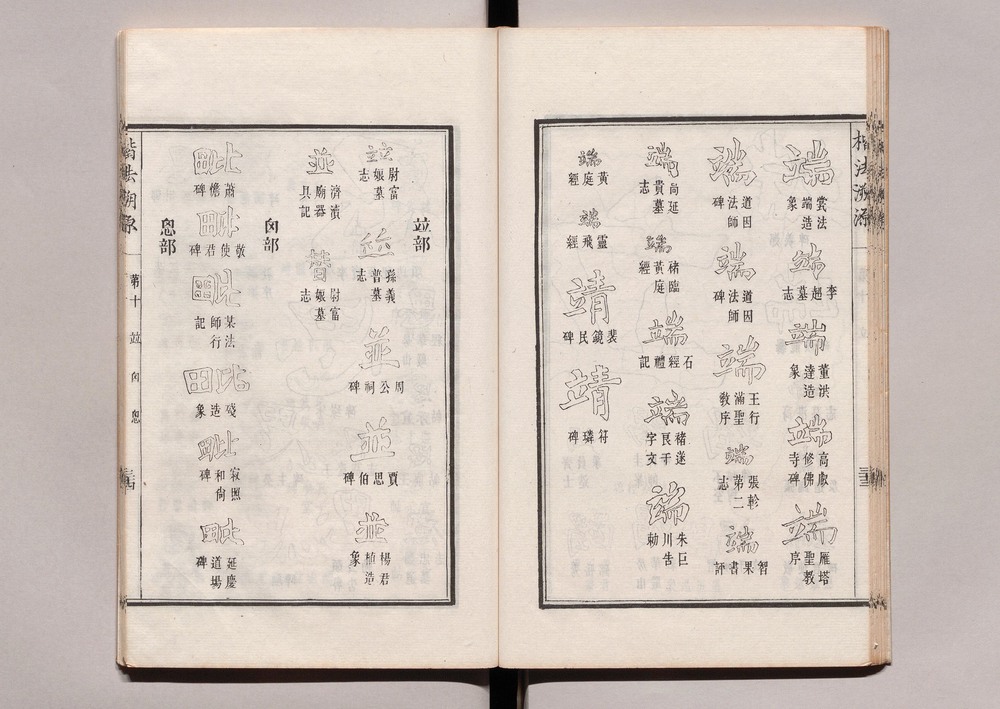 楷法溯源
端 裳法端造象
端 李超墓志
端 董洪達造象
端 高叡修佛寺碑
端 雁塔聖教序
端 道因法師碑
端 道因法師碑
端 王行滿聖教序
端 張軫第二志
端 智果書評
端 尚延貴墓志
端 褚臨黃庭經
端 石經禮記
端 褚遂良千字文
端 朱巨川告勅
端 黃庭經
端 靈飛經
靖 裴鏡民碑
靖 符璘碑
竝部
竝 尉富娘墓志
並 孫義普墓志
並 周公祠碑
並 賈思伯碑
並 楊君植造象
並 濟瀆廟器具記
替 尉富娘墓志
囟部
毗 蕭憺碑
毗 敬使君碑
毗 某法師行記
毗 殘造象
毗 寂照和尚碑
毗 延慶道場碑
思部
楷法溯源
第十 竝 囟 思